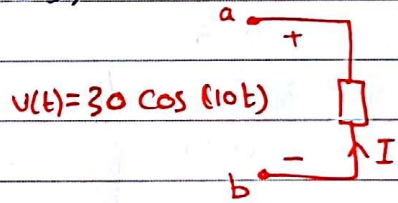 a
+
v(t)=30 cos (10t)
I
-
b